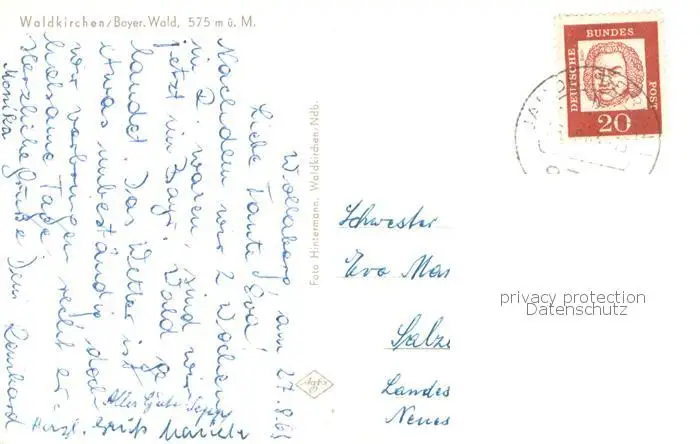 Waldkirchen/Bayer. Wald, 575 m ü. M.
Wollaberg, am 27.8.63
Liebe Tante Eva!
Nachdem wir 2 Wochen
in waren, sind wir
jetzt im Bayr. Wald ge-
landet. Das Wetter ist
etwas unbeständig doch
wir verbringen recht er-
holsame Tage.
Herzliche Grüße Dein Bernhard
Monika
Alles Gute Sepp
Herzl. Gruß
Foto Hintermann, Waldkirchen/Ndb.
DEUTSCHE
BUNDES
POST
20
Schwester
Eva Mas
Salz
Landes
Neues
privacy protection
Datenschutz